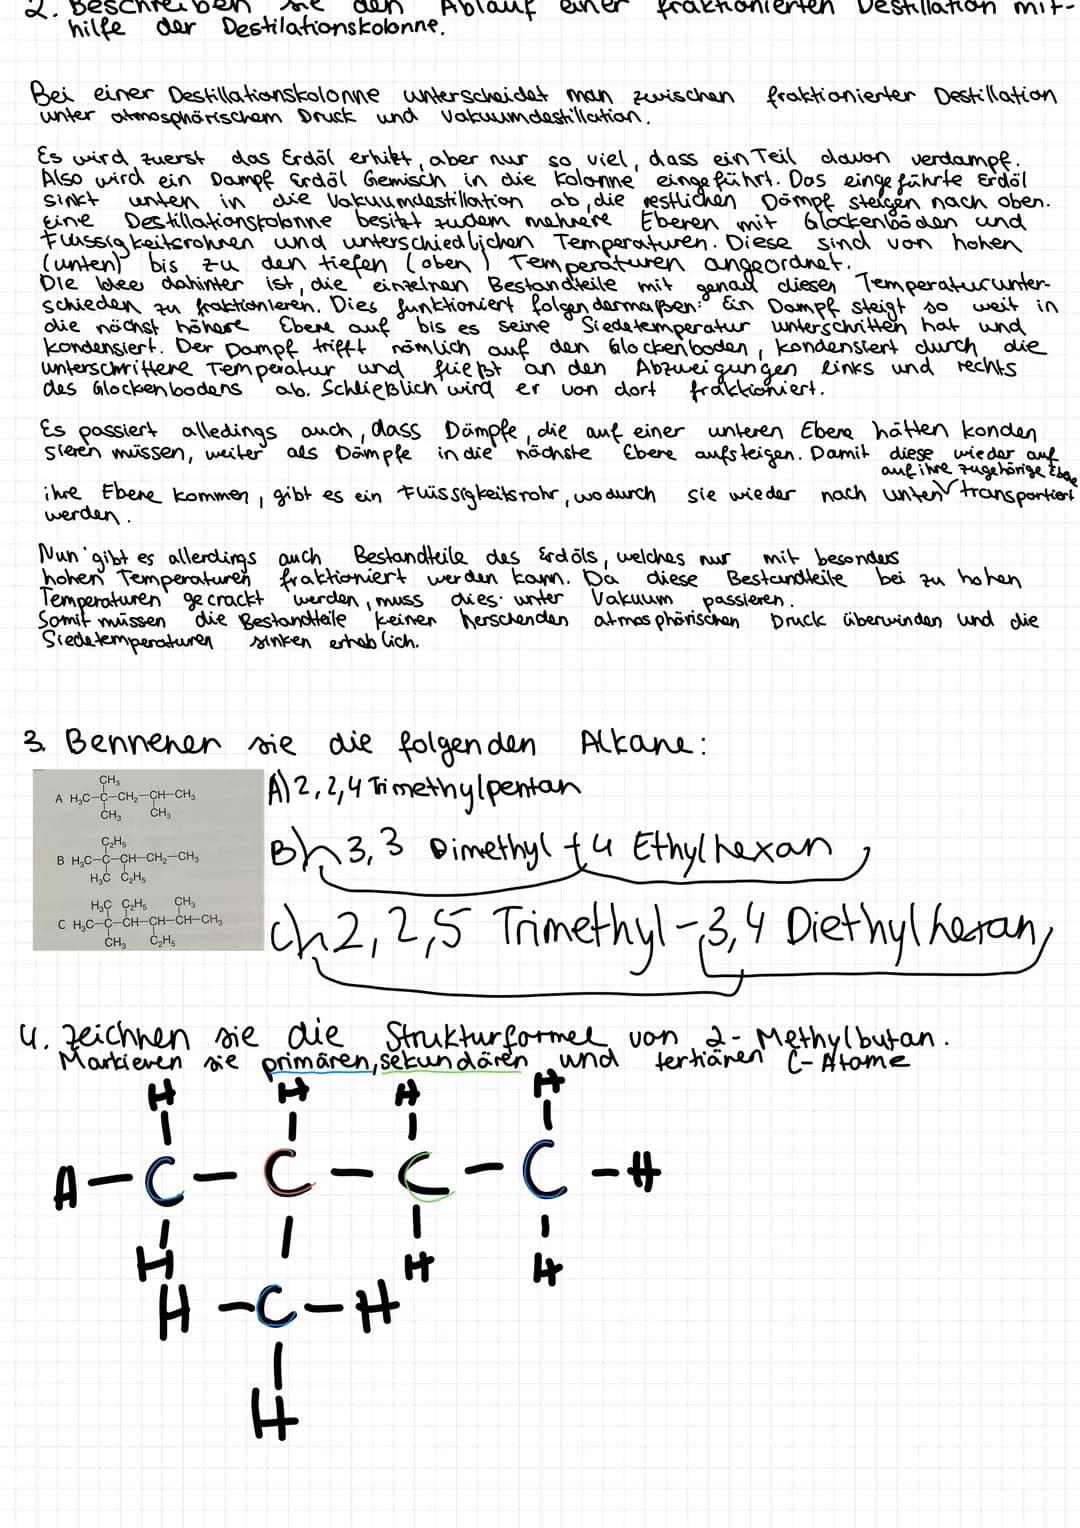 2. Beschreiben sie den Ablauf einer fraktionierten Destillation mit-
hilfe der Destilationskolonne.
Bei einer Destillationskolonne unterscheidet man zwischen fraktionierter Destillation
unter atmosphärischem Druck und Vakuumdestillation.
Es wird zuerst das Erdöl erhitzt, aber nur so viel, dass ein Teil davon verdampf.
Also wird ein Dampf Erdöl Gemisch in die Kolonne eingeführt. Das eingeführte Erdöl
sinkt unten in die Vakuumdestillation ab, die restlichen Dämpf steigen nach oben.
Eine Destillationskolonne besitzt zudem mehrere Eberen mit Glockenböden und
Flüssigkeitsrohren und unterschiedlichen Temperaturen. Diese sind von hohen
(unten) bis zu den tiefen (oben) Temperaturen angeordnet.
Die Idee dahinter ist, die einzelnen Bestandteile mit genau diesen Temperaturunter-
schieden zu fraktionieren. Dies funktioniert folgendermaßen: Ein Dampf steigt so weit in
die nächst höhere Ebene auf bis es seine Siedetemperatur unterschritten hat und
kondensiert. Der Dampf trifft nämlich auf den Glockenboden, kondensiert durch die
unterschrittene Temperatur und fließt an den Abzweigungen links und rechts
des Glockenbodens ab. Schließlich wird er von dort fraktioniert.
Es passiert alledings auch, dass Dämpfe, die auf einer unteren Ebene hätten konden
sieren müssen, weiter als Dämpfe in die nächste Ebene aufsteigen. Damit diese wieder auf
auf ihre zugehörige Ebene
ihre Ebene kommen, gibt es ein Flüssigkeitsrohr, wodurch sie wieder nach unten transportiert
werden.
Nun gibt es allerdings auch Bestandteile des Erdöls, welches nur mit besonders
hohen Temperaturen fraktioniert werden kann. Da diese Bestandteile bei zu hohen
Temperaturen gecrackt werden, muss dies unter Vakuum passieren.
Somit müssen die Bestandteile keinen herschenden atmosphärischen Druck überwinden und die
Siedetemperaturen sinken erheblich.
3. Bennenen sie die folgenden Alkane:
CH₃
A H₃C–C–CH₂–CH–CH₃
CH₃ CH₃
C₂H₅
B H₃C–C–CH–CH₂–CH₃
H₃C C₂H₅
H₃C C₂H₅ CH₃
C H₃C–C–CH–CH–CH–CH₃
CH₃ C₂H₅
A) 2,2,4 Trimethylpentan
B) 3,3 Dimethyl + 4 Ethylhexan
C) 2,2,5 Trimethyl - 3,4 Diethylhexan
4. Zeichnen sie die Strukturformel von 2-Methylbutan.
Markieren sie primären, sekundären und tertiären C-Atome
H H H H
H – C – C – C – C – H
H H H
H – C – H
H